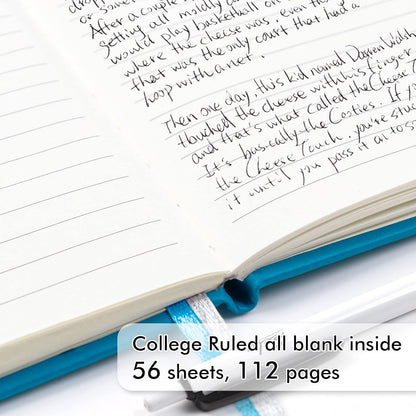 or some
After a couple
getting all moldy a
would play basketball on
where the cheese was, even tho
that was the only court that had a
hoop with a net.
Then one day this kid named Darren Walsh
touched the cheese with his finger
and that's what called the Cheese
It's basically the Cooties. If y
the Cheese Touch, you're stu
it until you pass it on to so
College Ruled all blank inside
56 sheets, 112 pages